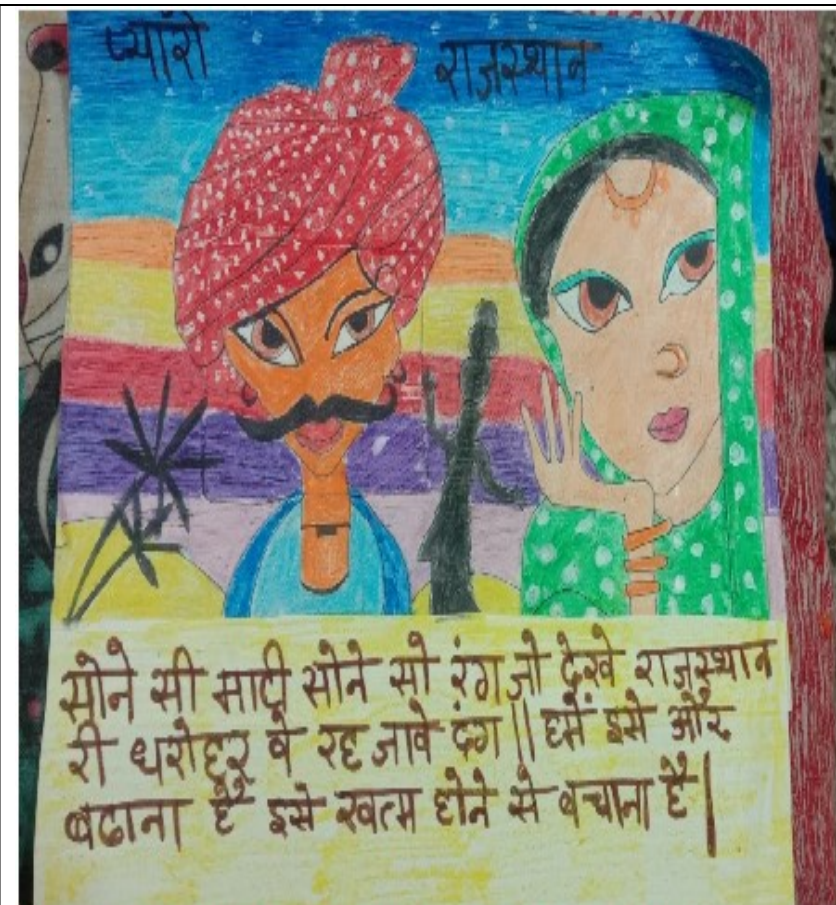 प्यारो राजस्थान
सोने सी माटी सोने सो रंग जो देखे राजस्थान
री धरोहर वे रह जावे दंग॥ हमें इसे और
बढाना है इसे खत्म होने से बचाना है|